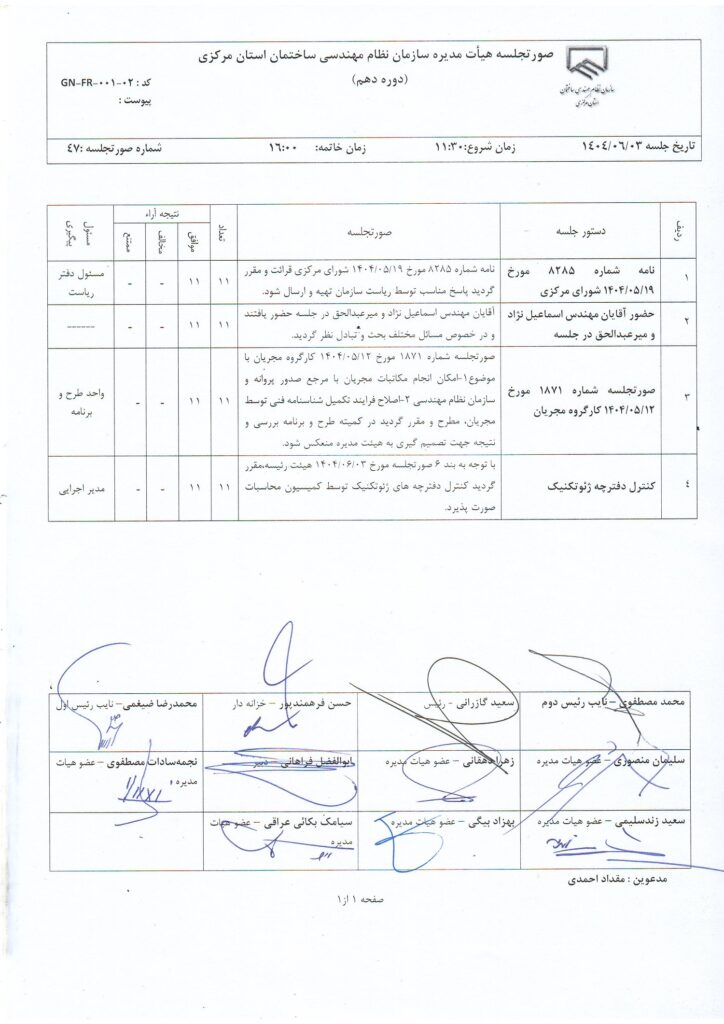 صورتجلسه هیأت مدیره سازمان نظام مهندسی ساختمان استان مرکزی
(دوره دهم)
سازمان نظام مهندسی ساختمان
استان مرکزی
کد : GN-FR-۰۰۱-۰۲
پیوست :
تاریخ جلسه ۱۴۰۴/۰۶/۰۳ زمان شروع:۱۱:۳۰ زمان خاتمه: ۱۶:۰۰ شماره صورتجلسه :۴۷
ردیف دستور جلسه صورتجلسه تعداد نتیجه آراء مسئول پیگیری
موافق مخالف ممتنع
۱
نامه شماره ۸۲۸۵ مورخ
۱۴۰۴/۰۵/۱۹ شورای مرکزی
نامه شماره ۸۲۸۵ مورخ ۱۴۰۴/۰۵/۱۹ شورای مرکزی قرائت و مقرر
گردید پاسخ مناسب توسط ریاست سازمان تهیه و ارسال شود.
۱۱ ۱۱ - -
مسئول دفتر
ریاست
۲
حضور آقایان مهندس اسماعیل نژاد
و میرعبدالحق در جلسه
آقایان مهندس اسماعیل نژاد و میرعبدالحق در جلسه حضور یافتند
و در خصوص مسائل مختلف بحث و تبادل نظر گردید.
۱۱ ۱۱ - -
------
۳
صورتجلسه شماره ۱۸۷۱ مورخ
۱۴۰۴/۰۵/۱۲ کارگروه مجریان
صورتجلسه شماره ۱۸۷۱ مورخ ۱۴۰۴/۰۵/۱۲ کارگروه مجریان با
موضوع۱-امکان انجام مکاتبات مجریان با مرجع صدور پروانه و
سازمان نظام مهندسی ۲-اصلاح فرایند تکمیل شناسنامه فنی توسط
مجریان، مطرح و مقرر گردید در کمیته طرح و برنامه بررسی و
نتیجه جهت تصمیم گیری به هیئت مدیره منعکس شود.
۱۱ ۱۱ - -
واحد طرح و
برنامه
۴
کنترل دفترچه ژئوتکنیک
با توجه به بند ۶ صورتجلسه مورخ ۱۴۰۴/۰۶/۰۳ هیئت رئیسه،مقرر
گردید کنترل دفترچه های ژئوتکنیک توسط کمیسیون محاسبات
صورت پذیرد.
۱۱ ۱۱ - -
مدیر اجرایی
محمد مصطفوی – نایب رئیس دوم
سعید گازرانی - رئیس
حسن فرهمندپور – خزانه دار
محمدرضا ضیغمی – نایب رئیس اول
سلیمان منصوری – عضو هیات مدیره
زهرا دهقانی – عضو هیات مدیره
ابوالفضل فراهانی – دبیر
نجمه‌سادات مصطفوی – عضو هیات
مدیره
سعید زندسلیمی – عضو هیات مدیره
بهزاد بیگی – عضو هیات مدیره
سیامک بکائی عراقی – عضو هیات
مدیره
مدعوین : مقداد احمدی
صفحه ۱ از۱